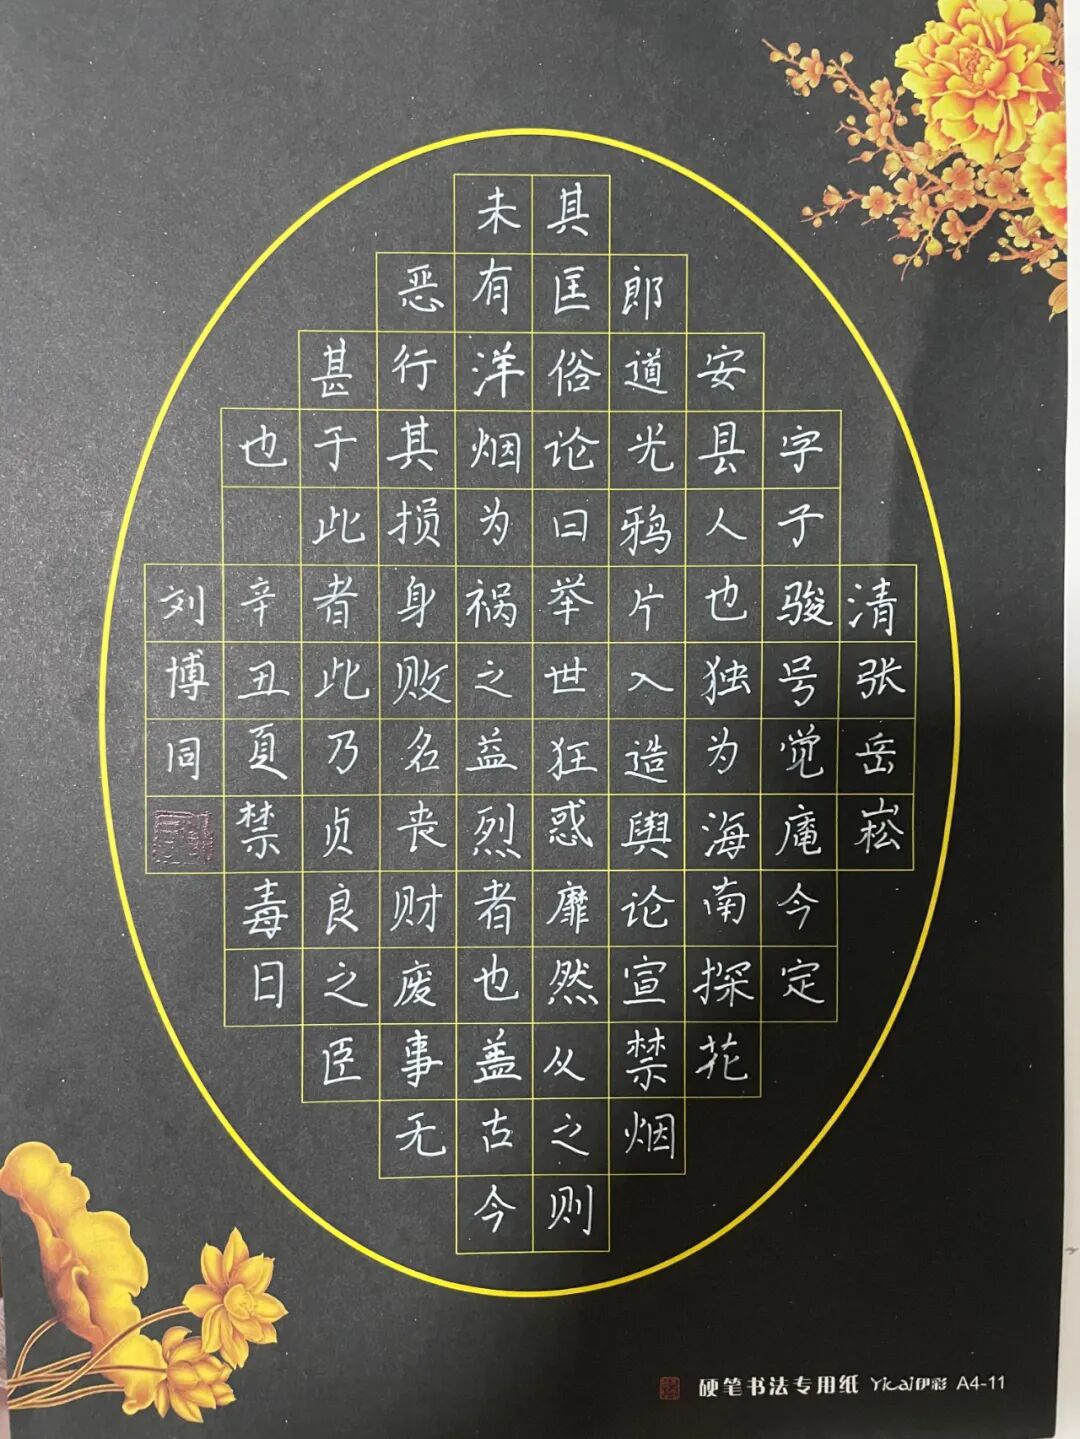 清张岳崧
字子骏号觉庵今定
安县人也独为海南探花
郎道光鸦片入造舆论宣禁烟
其匡俗论曰举世狂惑靡然从之则
未有洋烟为祸之益烈者也盖古今
恶行其损身败名丧财废事无
甚于此者此乃贞良之臣
也 辛丑夏禁毒日
刘博同
硬笔书法专用纸 Yicai伊彩 A4-11